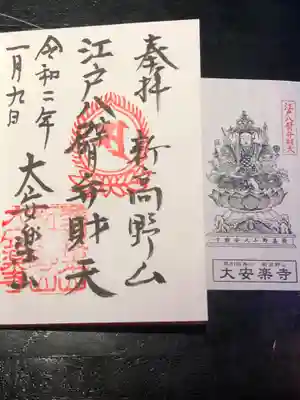 奉拝
新高野山
江戸八臂弁財天
大安楽寺
令和二年
一月九日
江戸八臂弁財天
大安楽寺